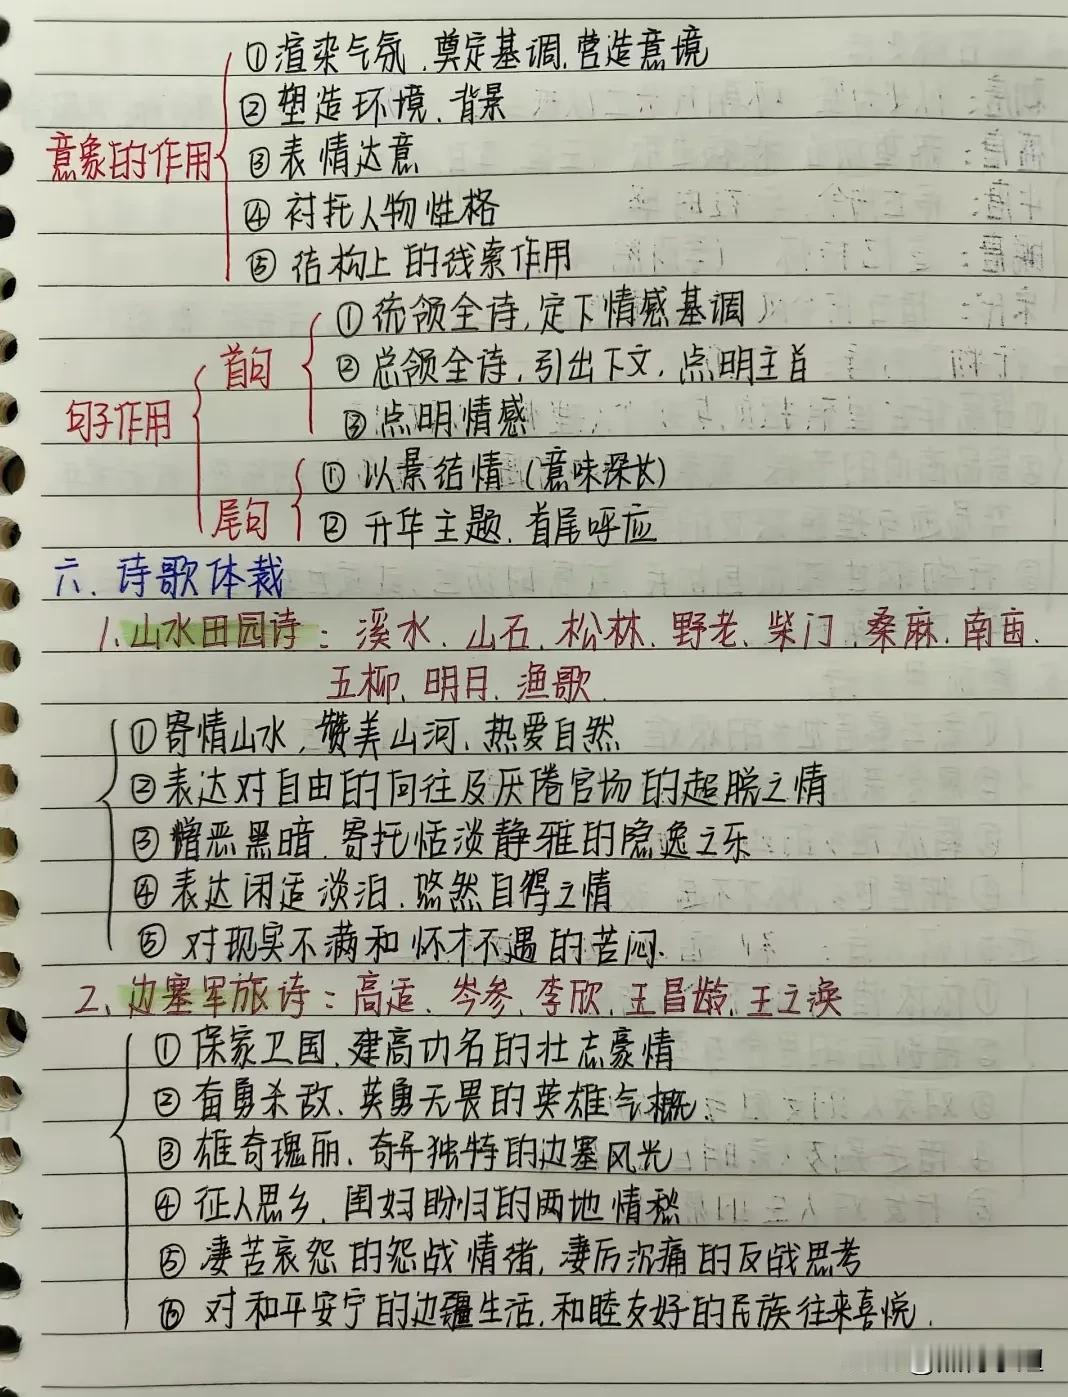 ①渲染气氛、奠定基调、营造意境
②塑造环境、背景
意象的作用
③表情达意
④衬托人物性格
⑤结构上的线索作用
①统领全诗,定下情感基调
首句
②总领全诗,引出下文,点明主旨
句子作用
③点明情感
①以景结情(意味深长)
尾句
②升华主题、首尾呼应
六、诗歌体裁
1、山水田园诗:溪水、山石、松林、野老、柴门、桑麻、南亩、
五柳、明月、渔歌
①寄情山水,赞美山河、热爱自然
②表达对自由的向往及厌倦官场的超脱之情
③憎恶黑暗、寄托恬淡静雅的隐逸之乐
④表达闲适淡泊、悠然自得之情
⑤对现实不满和怀才不遇的苦闷.
2、边塞军旅诗:高适、岑参、李欣、王昌龄、王之涣
①保家卫国、建高功名的壮志豪情
②奋勇杀敌、英勇无畏的英雄气概
③雄奇瑰丽、奇异独特的边塞风光
④征人思乡、闺妇盼归的两地情愁
⑤凄苦哀怨的怨战情绪,凄厉沉痛的反战思考
⑥对和平安宁的边疆生活,和睦友好的民族往来喜悦.